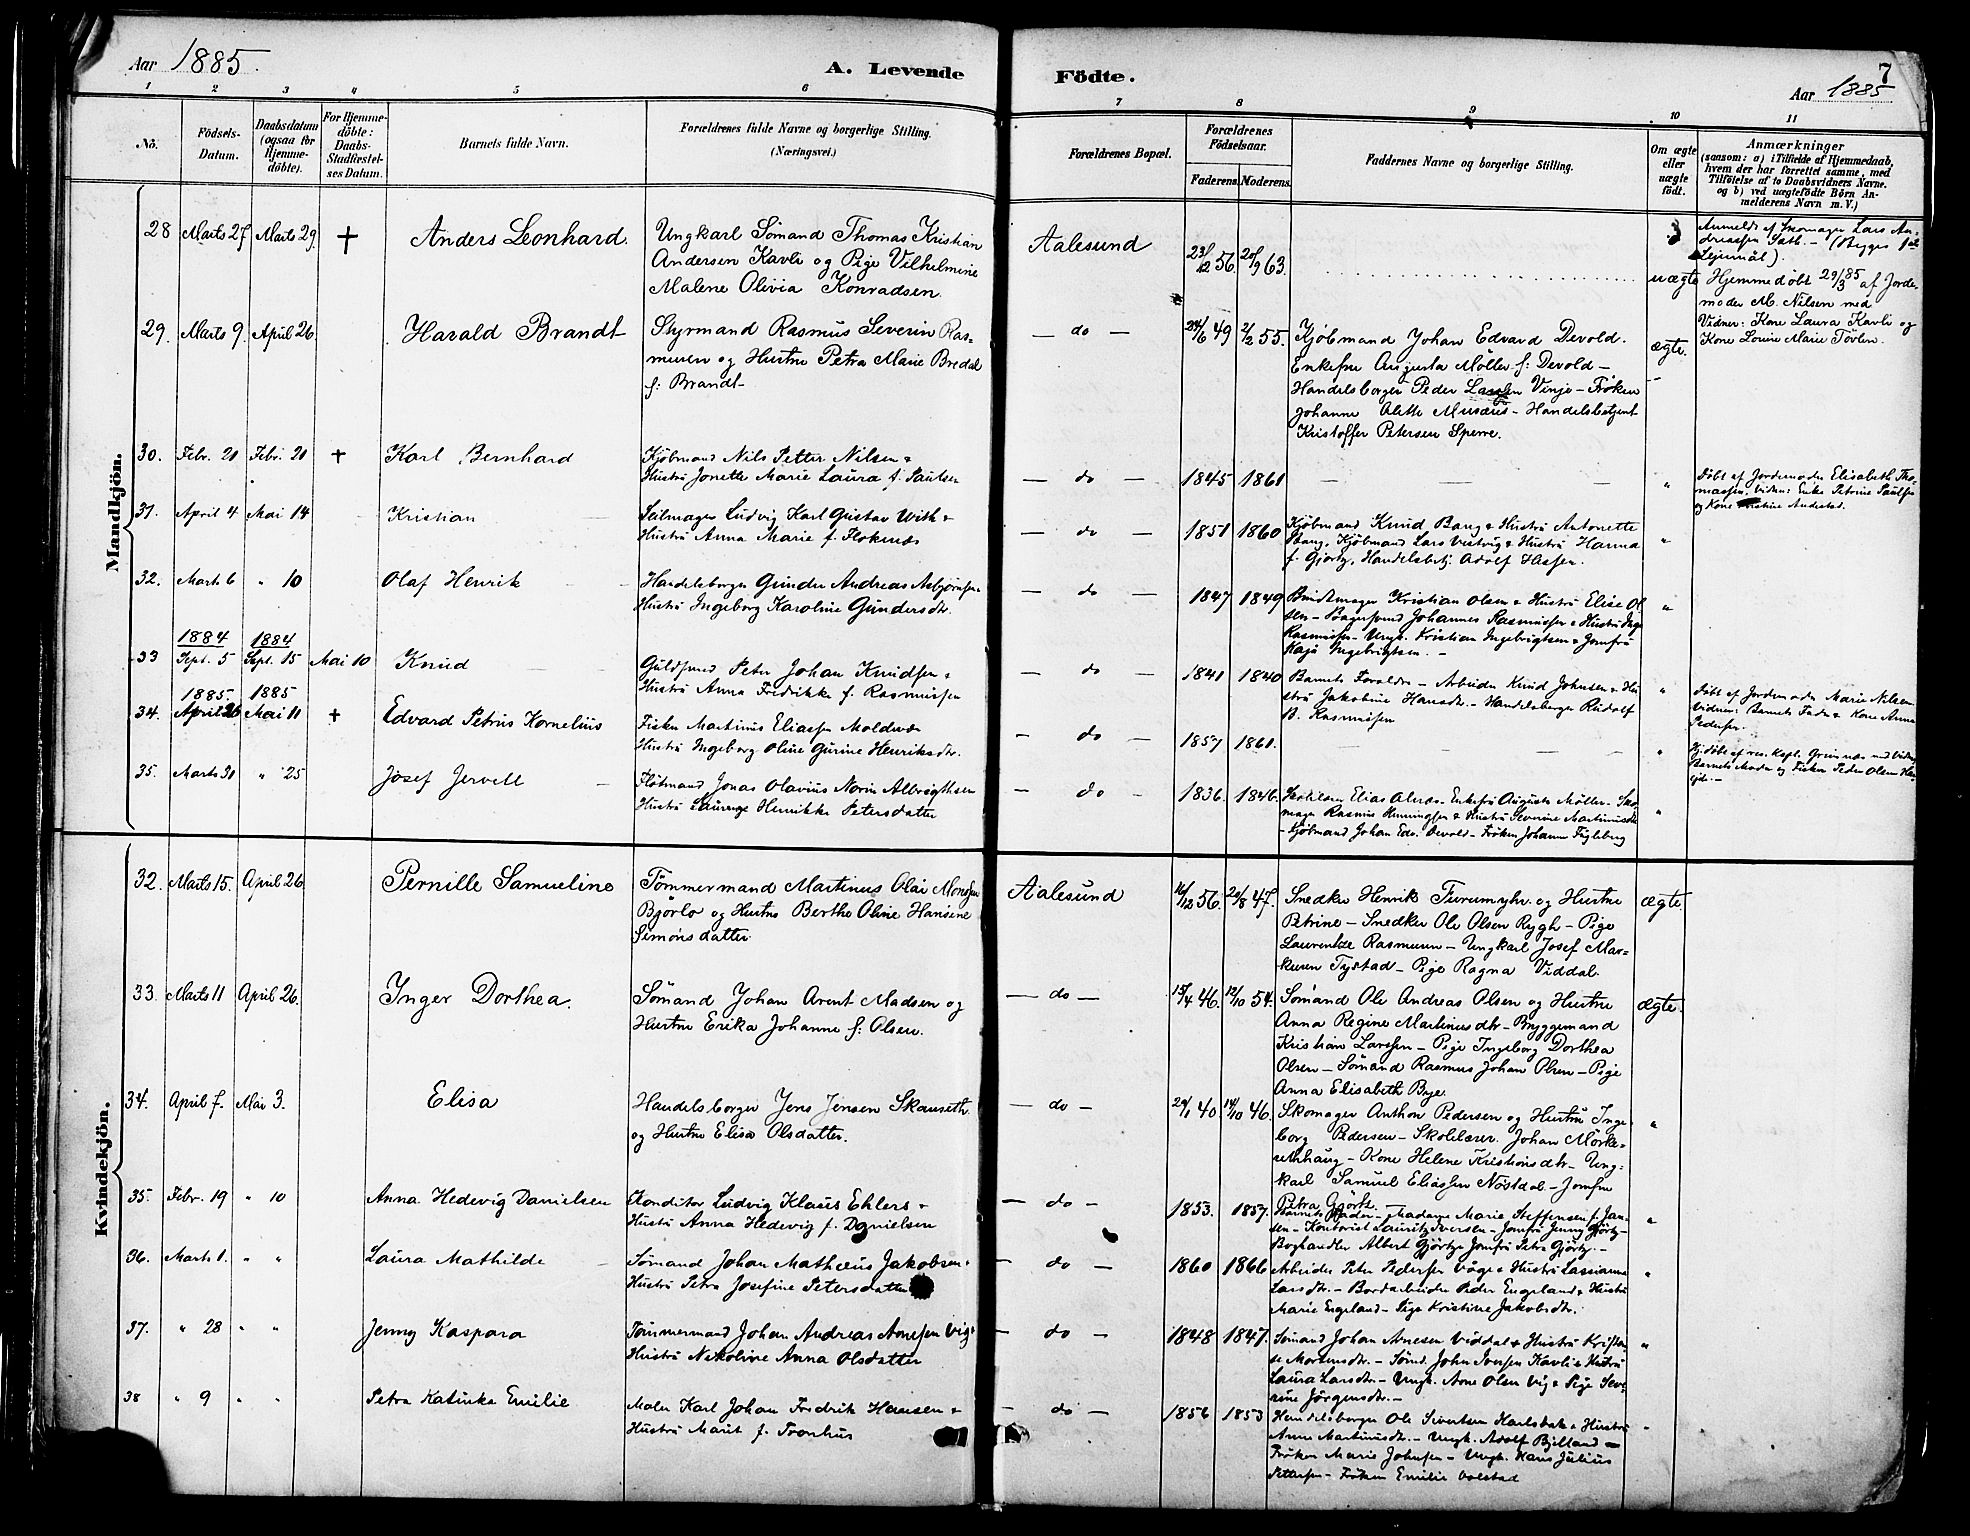 Aar 1885.
A. Levende
Födte.
7
Aar 1885
1 2 3 4 5 6
7 8 9 10 11
No.
Födsels-
Datum.
Daabsdatum
(ogsaa for
Hjemme-
döbte).
For Hjemme-
döbte:
Daabs-
Stadfæstel-
ses Datum.
Barnets fulde Navn.
Forældrenes fulde Navne og borgerlige Stilling.
(Næringsvei.)
Forældrenes Bopæl.
Forældrenes
Födselsaar.
Faderens. Moderens.
Faddernes Navne og borgerlige Stilling.
Om ægte
eller
uægte
födt.
Anmærkninger
(saasom: a) i Tilfælde af Hjemmedaab,
hvem der har forrettet samme, med
Tilföielse af to Daabsvidners Navne.
og b) ved uægtefödte Börn An-
melderens Navn m. V.)
Mandkjön.
28 Marts 27 Marts 29. + Anders Leonhard.
Ungkarl Sömand Thomas Kristian
Andersen Kavli og Pige Vilhelmine
Malene Olivia Konradsen.
Aalesund 23/12 56. 20/9 63.
uægte
Anmeldt af Skomager Lars An-
dreassen Sæth. - (Begges 1ste
Leiermål).
Hjemmedöbt 29/3 85 af Jorde-
moder M. Nilsen med
Vidner: Kone Laura Kavli og
Kone Lovise Marie Törlen.
29. Marts 9 April 26. Harald Brandt
Styrmand Rasmus Severin Ras-
mussen og Hustru Petra Marie Bredal
f: Brandt
- do - 24/6 49 2/2 55.
Kjöbmand Johan Edvard Devold.
Enkefru Augusta Möller f: Devold -
Handelsborger Peder Larsen Vinje - Fröken
Johanne Alette Musæus - Handelsbetjent
Kristoffer Petersen Sperre.
ægte.
30. Febr. 20 Febr. 20 + Karl Bernhard
Kjöbmand Nils Petter Nilsen &
Hustru Jonette Marie Laura f. Paulsen
- do - 1845 1861 - - - "
Döbt af Jordemoder Elisabeth Tho-
massen. Vidner: Enke Petrine Paulsen
og Kone
31. April 4 Mai 14 Kristian
Seilmager Ludvig Karl Gustav With &
Hustru Anna Marie f. Floknæs
- do - 1851 1860
Kjöbmand Knud Bang & Hustru Antonette
Bang, Kjöbmand Lars Vestvig & Hustru Hanna
f. Gjörtz, Handelsbetj. Adolf Hassen.
"
32. Marts 6 " 10 Olaf Henrik
Handelsborger Gunder Andreas Asbjørnsen &
Hustru Ingeborg Karoline Gundersdtr.
- do - 1847 1849
Buntmager Kristian Olsen & Hustru Elise Ol-
sen - Bagersvend Johannes Rasmussen & Hustru Inge
Rasmussen - Ungk. Kristian Ingebrigtsen & Jomfru
Kaja Ingebrigtsen. -
"
33 1884 Sept. 5 1884 Sept. 15 Mai 10 Knud
Guldsmed Peter Johan Knudsen &
Hustru Anna Fredrikke f. Rasmussen
- do - 1841 1840
Barnets Forældre - Arbeider Knud Johnsen & Hu-
stru Jakobine Hansdtr. - Handelsborger Rudolf
B. Rasmussen
"
34. 1885. April 26 1885 Mai 11 + Edvard Petrus Kornelius
Fisker Martinus Eliassen Moldvær
Hustru Ingeborg Oline Gurine Henriksdtr.
- do - 1857 1861. - - - "
Döbt af Jordemoder Marie Nilsen
Vidner: Barnets Fader & Kone Anne
Pedersen.
35. Marts 30 " 25 Josef Jervell
Fløtmand Jonas Olavius Norin Albrigthsen
Hustru Laurenze Henrikke Petersdatter
- do - 1836. 1846.
Elias Alnæs - Enkefru Augusta Möller - Sko-
mager Rasmus Henningsen & Hustru Severine Martinusdtr
- Kjöbmand Johan Edv. Devold - Fröken Johanna Fugleberg
"
Hj. döbt af res. Kapl. Grimnæs med Vidner
Barnets Moder og Fisker Peder Olsen
Kvindekjön.
32. Marts 15. April 26 Pernille Samueline
Tömmermand Martinus Olai Monsen
Björlo og Hustru Berthe Oline Hansine
Simonsdatter
Aalesund 16/12 56. 20/8 47.
Snedker Henrik Furumyhr og Hustru
Petrine - Snedker Ole Olsen Rygh - Pige
Laurentze Rasmussen - Ungkarl Josef Mar-
kusen Tystad - Pige Ragna Viddal.
ægte.
33. Marts 11 April 26. Inger Dorthea.
Sömand Johan Arent Madsen og
Hustru Erika Johanne f: Olsen.
- do - 15/4 46. 12/10 54.
Sömand Ole Andreas Olsen og Hustru
Anna Regine Martinusdtr - Bryggemand
Kristian Larssen - Pige Ingeborg Dorthea
Olsen - Sömand Rasmus Johan Olsen - Pige
Anna Elisabeth Bye.
ægte.
34. April 7. Mai 3. Elisa
Handelsborger Jens Jensen Skauseth
og Hustru Elisa Olsdatter.
- do - 29/1 40. 14/10 46.
Skomager Anthon Pedersen og Hustru Inge-
borg Pedersen - Skolelærer Johan Mörke-
- Kone Helene Kristiansdtr - Ung-
karl Samuel Eliassen Nöstdal - Jomfru
Petra Gjörtz.
"
35. Febr. 19 " 10 Anna Hedevig Danielsen
Konditor Ludvig Klaus Ehlers &
Hustru Anna Hedevig f. Danielsen
- do - 1853. 1857.
Barnets Fader - Madame Marie Steffensen f. Jan-
sen - Kontorist Lauritz Iversen - Jomfru Jenny Gjörtz -
Boghandler Albert Gjörtz, Jomfru Petra Gjörtz. -
"
36. Marts 1. " " Laura Mathilde
Sömand Johan Mathæus Jakobsen &
Hustru Petra Josefine Petersdatter
- do - 1860 1866
Arbeider Peter Pedersen Våge & Hustru Lassianne
Larsdtr. - Bordarbeider Peder Engeland & Hustru
Marie Engeland - Pige Kristine Jakobsdtr.
"
37. " 28 " " Jenny Kaspara
Tömmermand Johan Andreas Arnesen Vig &
Hustru Nikoline Anna Olsdatter
- do - 1848 1847.
Sömand Johan Arnesen Viddal & Hustru Kristi-
ne Mortensdtr. - Sömd. John Iversen Kavli & Hustru
Laura Larsdtr. - Ungk. Arne Olsen Vig & Pige Seve-
rine Jörgensdtr. -
"
38 " 9 " " Petra Katinka Emilie
Maler Karl Johan Fredrik Hansen &
Hustru Marit f. Tronhus
- do - 1856 1853
Handelsborger Ole Sivertsen Karlsbak & Hustru
Anne Martinusdtr. - Ungk. Adolf Bjelland -
Fröken Marie Johnsen - Ungk. Hans Julius
Pettersen - Fröken Emilie Volstad
"